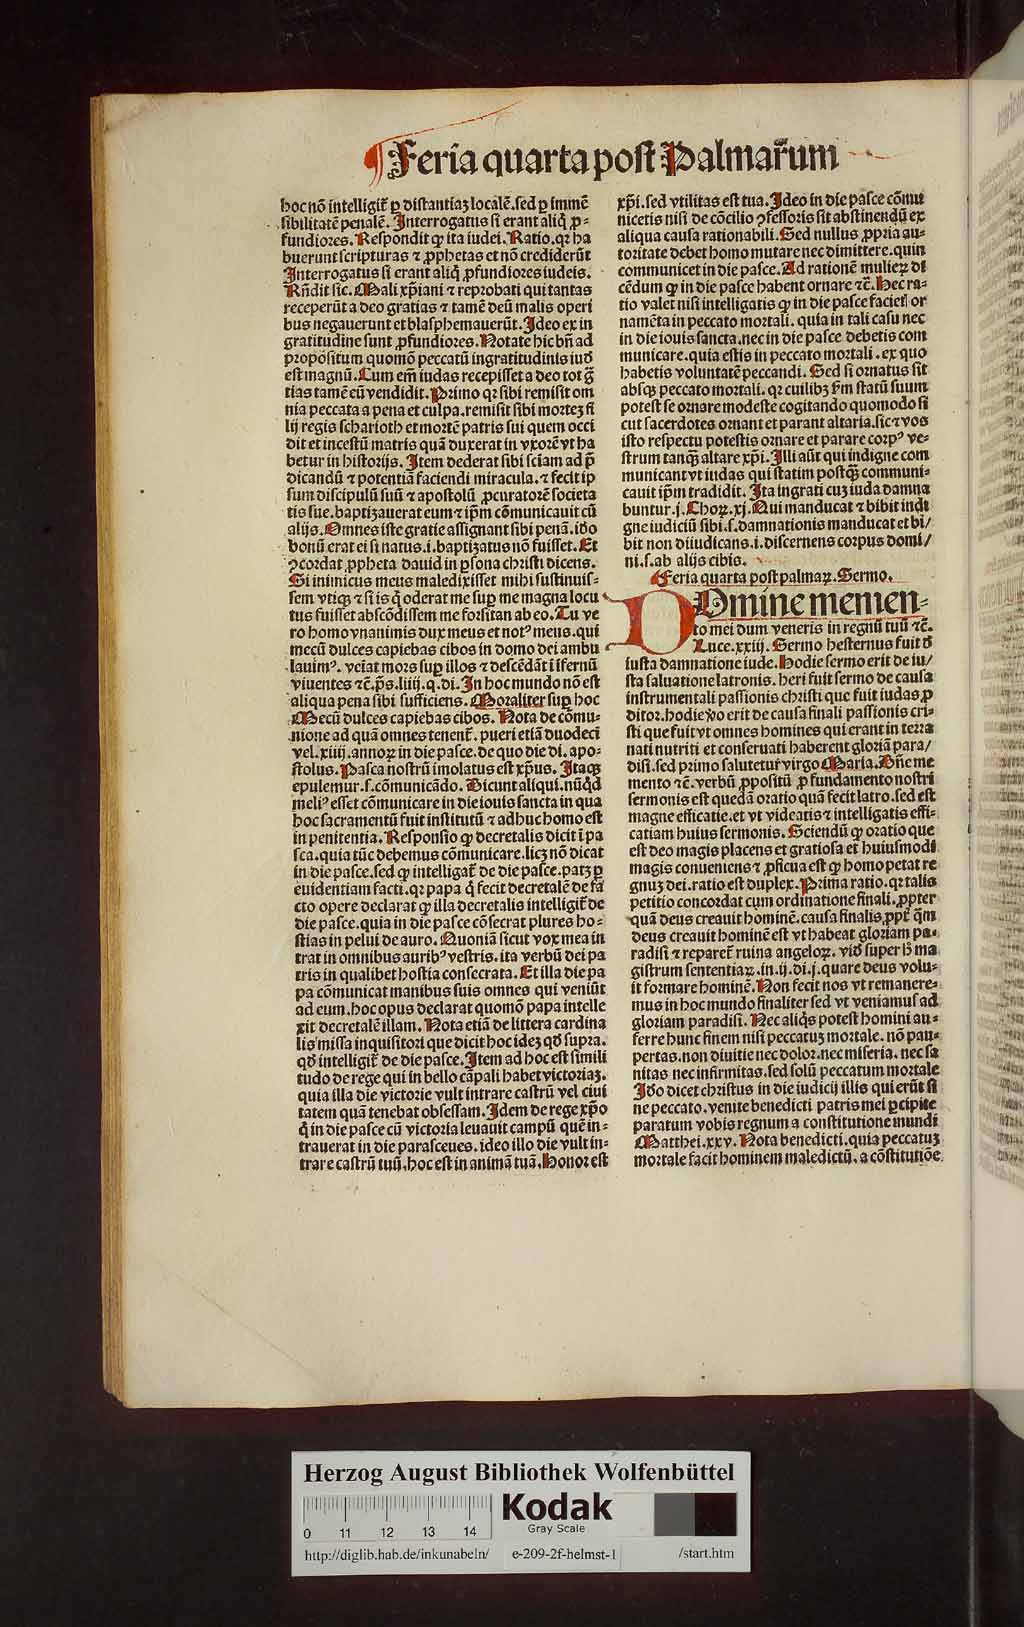 Feria quarta post Palmaꝝum
hoc nõ intelligit᷑ ꝑ distantiaꝫ localẽ.sed ꝑ immẽ
sibilitatẽ penalẽ. Interrogatus si erant aliq̃ ꝓ-
fundiores. Respondit ꝙ ita iudei. Ratio.qꝛ ha
buerunt scripturas ⁊ ꝓphetas et nõ crediderũt
Interrogatus si erant aliq̃ ꝓfundiores iudeis.
Rñdit sic. Mali xp̃iani ⁊ reprobati qui tantas
receperũt a deo gratias ⁊ tamẽ deũ malis operi
bus negauerunt et blasphemauerũt. Ideo ex in
gratitudine sunt ꝓfundiores. Notate hic bñ ad
propositum quomõ peccatũ ingratitudinis iud̃
est magnũ. Cum em̃ iudas recepisset a deo tot g̃
tias tamẽ eũ vendidit. Primo qꝛ sibi remisit om
nia peccata a pena et culpa.remisit sibi morteꝫ fi
lij regis scharioth et mortẽ patris sui quem occi
dit et incestũ matris quã duxerat in vxorẽ vt ha
betur in historijs. Item dederat sibi sciam ad p̃
dicandũ ⁊ potentiã faciendi miracula.⁊ fecit ip
sum discipulũ suũ ⁊ apostolũ ꝓcuratorẽ societa
tis sue.baptizauerat eum ⁊ ip̃m cõmunicauit cũ
alijs. Omnes iste gratie assignant sibi penã.ido
bonũ erat ei si natus.i.baptizatus nõ fuisset. Et
ꝯcordat ꝓpheta dauid in ꝑsona christi dicens.
Si inimicus meus maledixisset mihi sustinuis-
sem vtiqꝫ ⁊ si is q̃ oderat me suꝑ me magna locu
tus fuisset abscõdissem me forsitan ab eo. Tu ve
ro homo vnanimis dux meus et notꝰ meus.qui
mecũ dulces capiebas cibos in domo dei ambu
lauimꝰ. veiat mors suꝑ illos ⁊ descẽdãt ĩ ĩfernũ
viuentes ⁊c̃.p̃s.liiij.q.di. In hoc mundo nõ est
aliqua pena sibi sufficiens. Moraliter suꝑ hoc
Mecũ dulces capiebas cibos. Nota de cõmu-
nione ad quã omnes tenent᷑. pueri etiã duodeci
vel.xiiij.annoꝝ in die pasce.de quo die di. apo-
stolus. Pasca nostrũ imolatus est xp̃us. Itaqꝫ
epulemur.s.cõmunicãdo. Dicunt aliqui.nũq̃d
meliꝰ esset cõmunicare in die iouis sancta in qua
hoc sacramentũ fuit institutũ ⁊ adhuc homo est
in penitentia. Responsio ꝙ decretalis dicit ĩ pa
sca.quia tũc debemus cõmunicare.licꝫ nõ dicat
in die pasce.sed ꝙ intelligat᷑ de die pasce.patꝫ ꝑ
euidentiam facti.qꝛ papa q̃ fecit decretalẽ de fa
cto opere declarat ꝙ illa decretalis intelligit᷑ de
die pasce.quia in die pasce cõsecrat plures ho-
stias in pelui de auro. Quoniã sicut vox mea in
trat in omnibus auribꝰ vestris.ita verbũ dei pa
tris in qualibet hostia consecrata. Et illa die pa
pa cõmunicat manibus suis omnes qui veniũt
ad eum.hoc opus declarat quomõ papa intelle
xit decretalẽ illam. Nota etiã de littera cardina
lis missa inquisitori que dicit hoc ideꝫ qd̃ supra.
qd̃ intelligit᷑ de die pasce. Item ad hoc est simili
tudo de rege qui in bello cãpali habet victoriaꝫ.
quia illa die victorie vult intrare castrũ vel ciui
tatem quã tenebat obsessam. Idem de rege xp̃o
q̃ in die pasce cũ victoria leuauit campũ quẽ in-
trauerat in die parasceues.ideo illo die vult in-
trare castrũ tuũ.hoc est in animã tuã. Honor est
xp̃i.sed vtilitas est tua. Ideo in die pasce cõmu
nicetis nisi de cõcilio ꝯfessoris sit abstinendũ ex
aliqua causa rationabili. Sed nullus ꝓpria au-
toritate debet homo mutare nec dimittere.quin
communicet in die pasce. Ad rationẽ mulieꝝ di
cẽdum ꝙ in die pasce habent ornare ⁊c̃. Hec ra-
tio valet nisi intelligatis ꝙ in die pasce faciet or
namẽta in peccato mortali. quia in tali casu nec
in die iouis sancta.nec in die pasce debetis com
municare.quia estis in peccato mortali.ex quo
habetis voluntatẽ peccandi. Sed si ornatus sit
absqꝫ peccato mortali. qꝛ cuilibꝫ ẜm statũ suum
potest se ornare modeste cogitando quomodo si
cut sacerdotes ornant et parant altaria.sic ⁊ vos
isto respectu potestis ornare et parare corpꝰ ve-
strum tanqꝫ altare xp̃i. Illi aũt qui indigne com
municant vt iudas qui statim postqꝫ communi-
cauit ip̃m tradidit. Ita ingrati cuꝫ iuda damna
buntur.j.Choꝝ.xj. Qui manducat ⁊ bibit indi
gne iudiciũ sibi.s.damnationis manducat et bi/
bit non diiudicans.i.discernens corpus domi/
ni.s.ab alijs cibis.
Feria quarta post palmaꝝ. Sermo.
DOmine memen-
to mei dum veneris in regnũ tuũ ⁊c̃.
Luce.xxiij. Sermo hesternus fuit d̃
iusta damnatione iude. Hodie sermo erit de iu/
sta saluatione latronis. heri fuit sermo de causa
instrumentali passionis christi que fuit iudas ꝓ
ditor.hodie v̾o erit de causa finali passionis cri-
sti que fuit vt omnes homines qui erant in terra
nati nutriti et conseruati haberent gloriã para/
disi.sed primo salutetur᷑ virgo Maria. Dñe me
mento ⁊c̃.verbũ ꝓpositũ ꝓ fundamento nostri
sermonis est quedã oratio quã fecit latro.sed est
magne efficatie.et vt videatis ⁊ intelligatis effi-
catiam huius sermonis. Sciendũ ꝙ oratio que
est deo magis placens et gratiosa et huiusmodi
magis conueniens ⁊ ꝓficua est ꝙ homo petat re
gnuꝫ dei.ratio est duplex. Prima ratio.qꝛ talis
petitio concordat cum ordinatione finali.ꝓpter
quã deus creauit hominẽ.causa finalis ꝓpt᷑ q̃m
deus creauit hominẽ est vt habeat gloriam pa-
radisi ⁊ reparet᷑ ruina angeloꝝ. vid̃ super h̃ ma
gistrum sententiaꝝ.in.ij.di.j.quare deus volu-
it formare hominẽ. Non fecit nos vt remanere-
mus in hoc mundo finaliter sed vt veniamus ad
gloriam paradisi. Nec aliq̃s potest homini au-
ferre hunc finem nisi peccatuꝫ mortale. nõ pau-
pertas.non diuitie nec dolor.nec miseria. nec sa
nitas nec infirmitas.sed solũ peccatum mortale
Ido dicet christus in die iudicij illis qui erũt si
ne peccato.venite benedicti patris mei ꝑcipite
paratum vobis regnum a constitutione mundi
Matthei.xxv. Nota benedicti.quia peccatuꝫ
mortale facit hominem maledictũ. a cõstitutiõe
Herzog August Bibliothek Wolfenbüttel
Kodak
Gray Scale
0 11 12 13 14
http://diglib.hab.de/inkunabeln/ e-209-2f-helmst-1 /start.htm